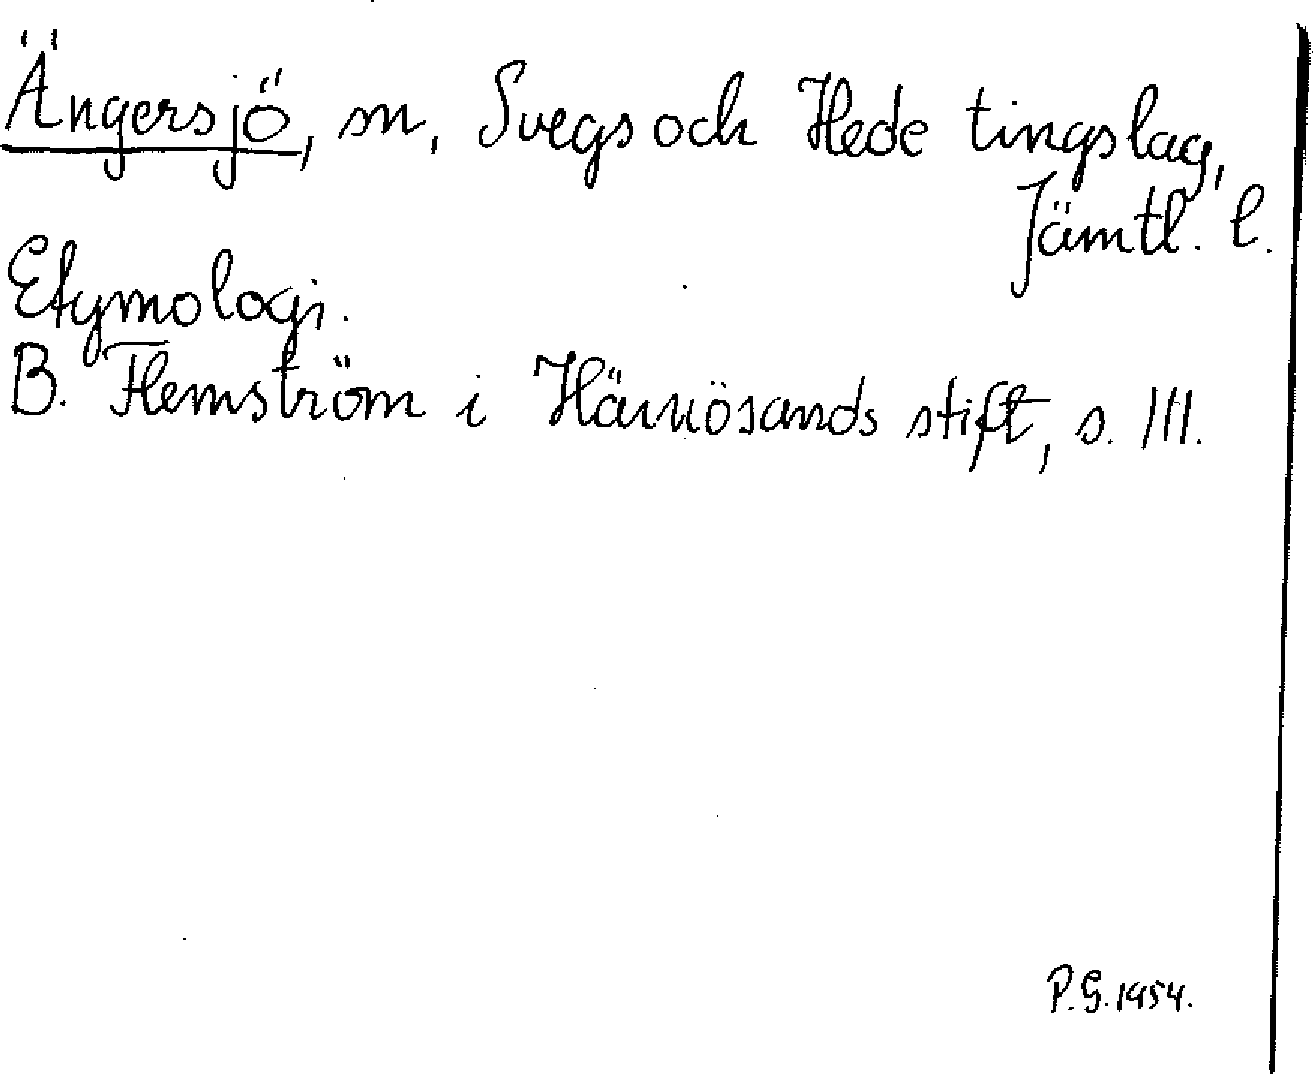 Ängersjö, sn, Svegs och Hede tingslag,
Jämtl. l.
Etymologi.
B. Flemström i Härnösands stift, s. 111.
P.G. 1954.